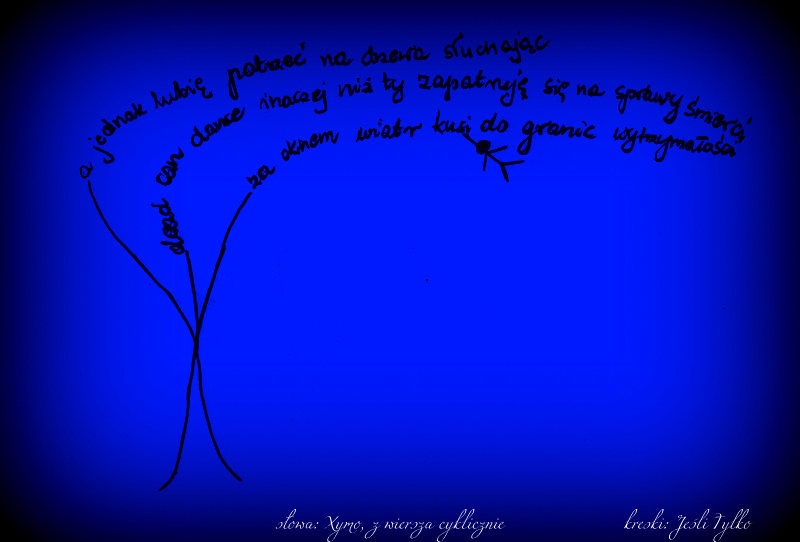 a jednak lubię patrzeć na drzewa słuchając
dead can dance inaczej niż ty zapatruję się na sprawy śmierci
za oknem wiatr kusi do granic wytrzymałości
słowa: Xymo, z wiersza cyklicznie
kreski: Jeśli Tylko